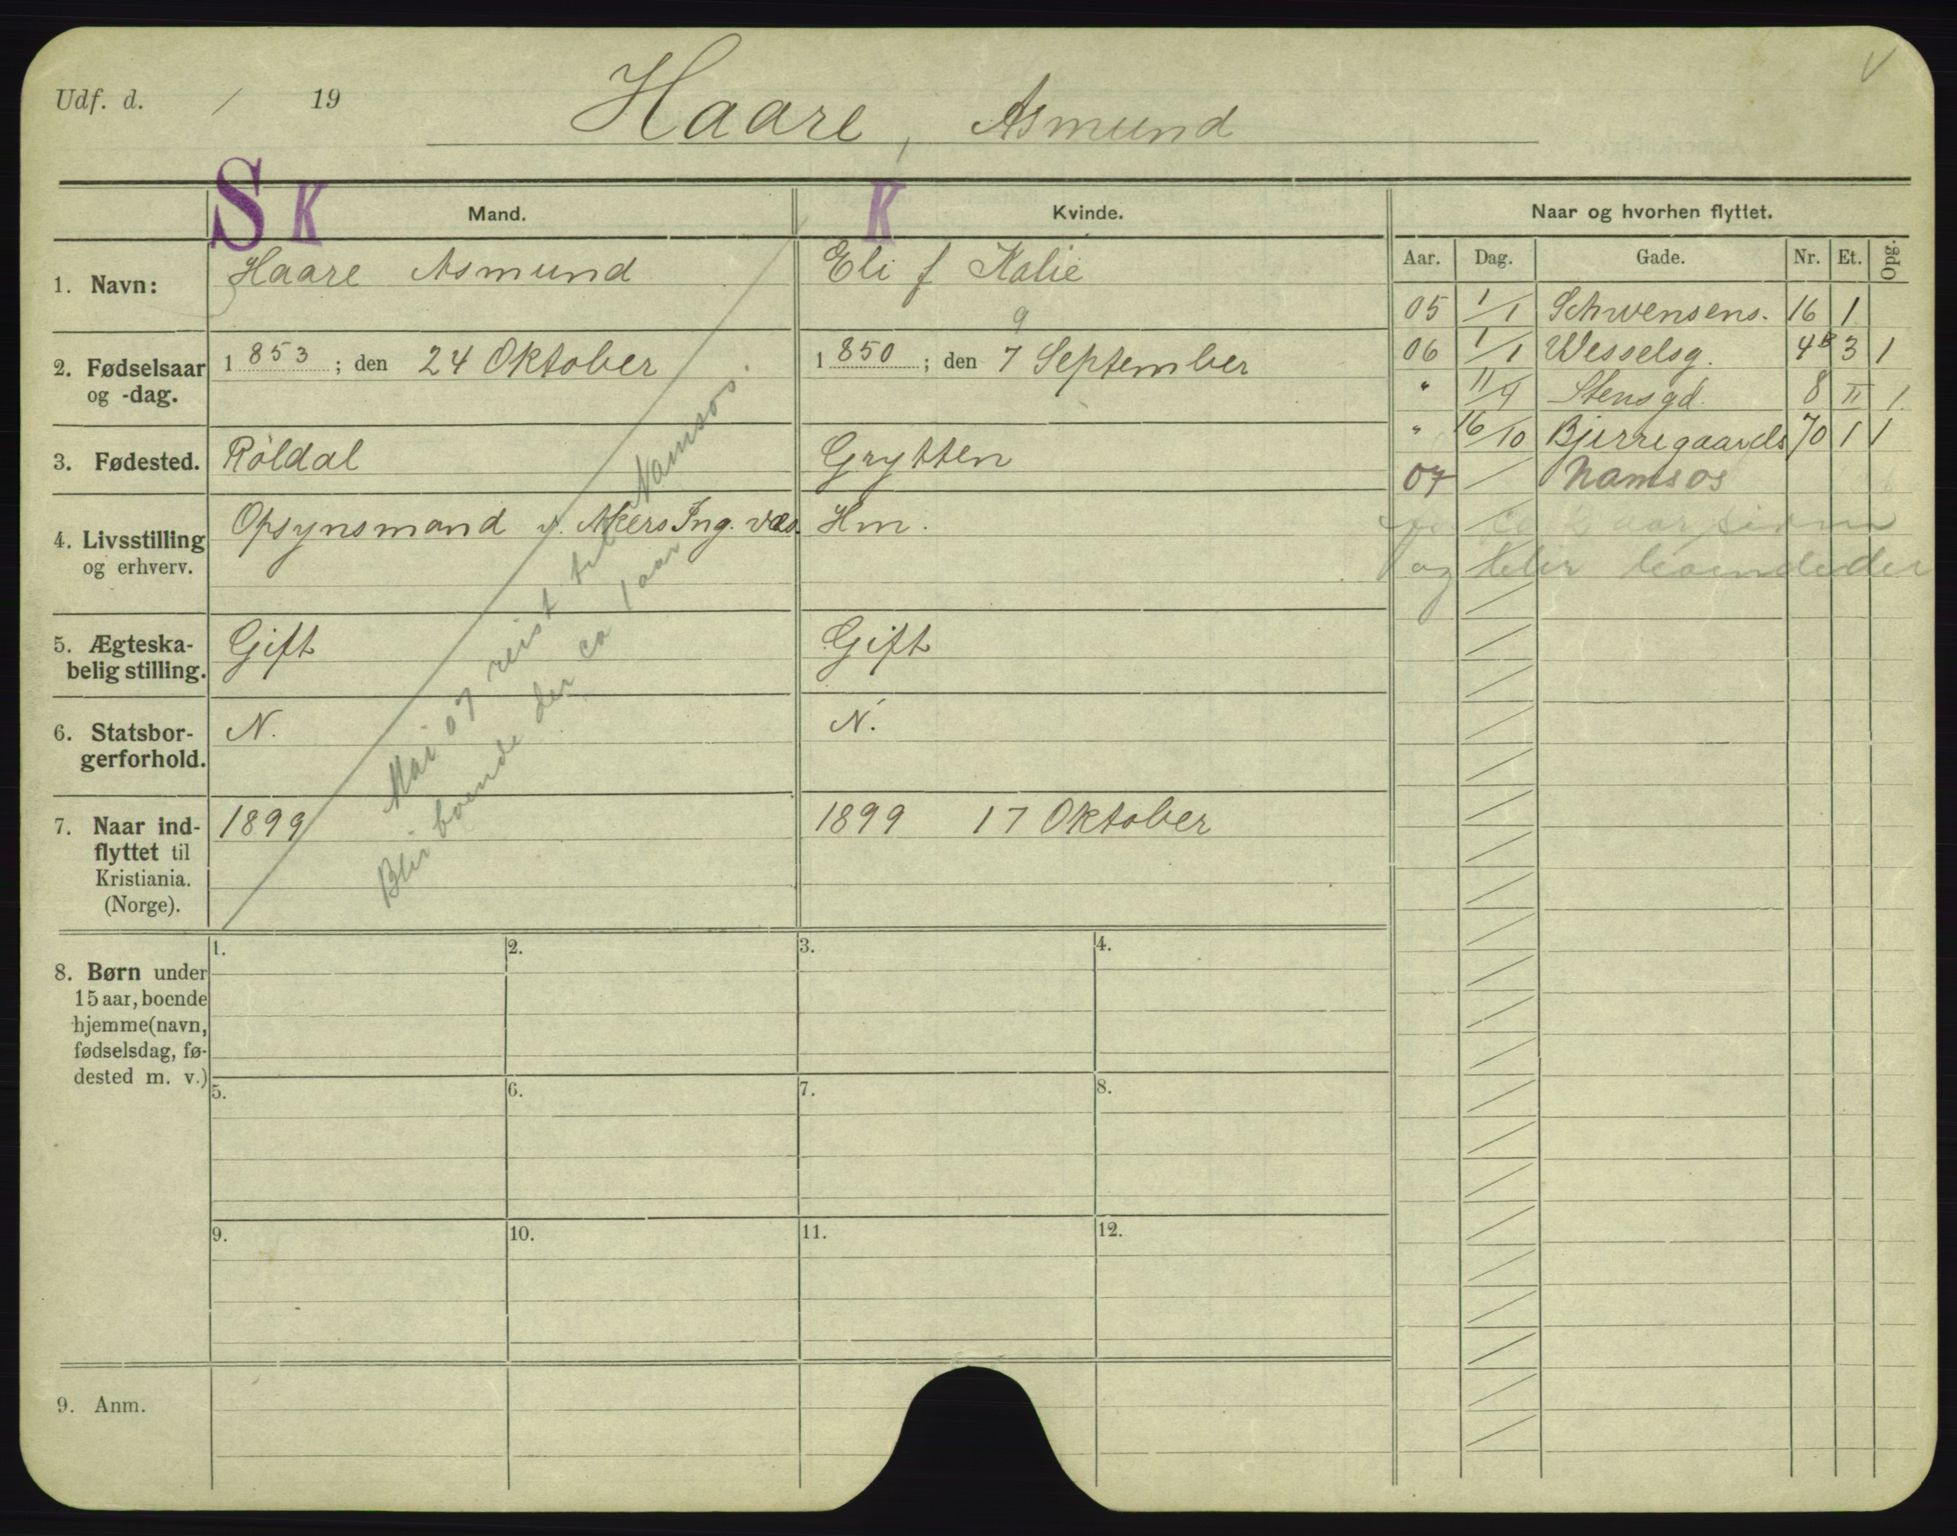 Udf. d. / 19
Haare, Asmund
V
S K K
Mand. Kvinde. Naar og hvorhen flyttet.
Aar. Dag. Gade. Nr. Et. Opg.
1. Navn: Haare Asmund Eli f Kalie
9
2. Fødselsaar og -dag. 1853; den 24 Oktober 1850; den 7 September
3. Fødested. Røldal Grytten
4. Livsstilling og erhverv. Opsynsmand v. Akers Ing. væs. Hm.
5. Ægteskabelig stilling. Gift Gift
6. Statsborgerforhold. N. N.
7. Naar indflyttet til Kristiania. (Norge). 1899 1899 17 Oktober
Mai 07 reist til Namsos.
Blir boende der ca 1 aar
05 1/1 Schwensens. 16 1
06 1/1 Wesselsg. 4B 3 1
" 11/4 Stensgd. 8 II 1
" 16/10 Bjerregaards 70 1 1
07 / Namsos
aar siden
og blir boende der
8. Børn under 15 aar, boende hjemme (navn, fødselsdag, fødested m. v.)
1. 2. 3. 4.
5. 6. 7. 8.
9. 10. 11. 12.
9. Anm.